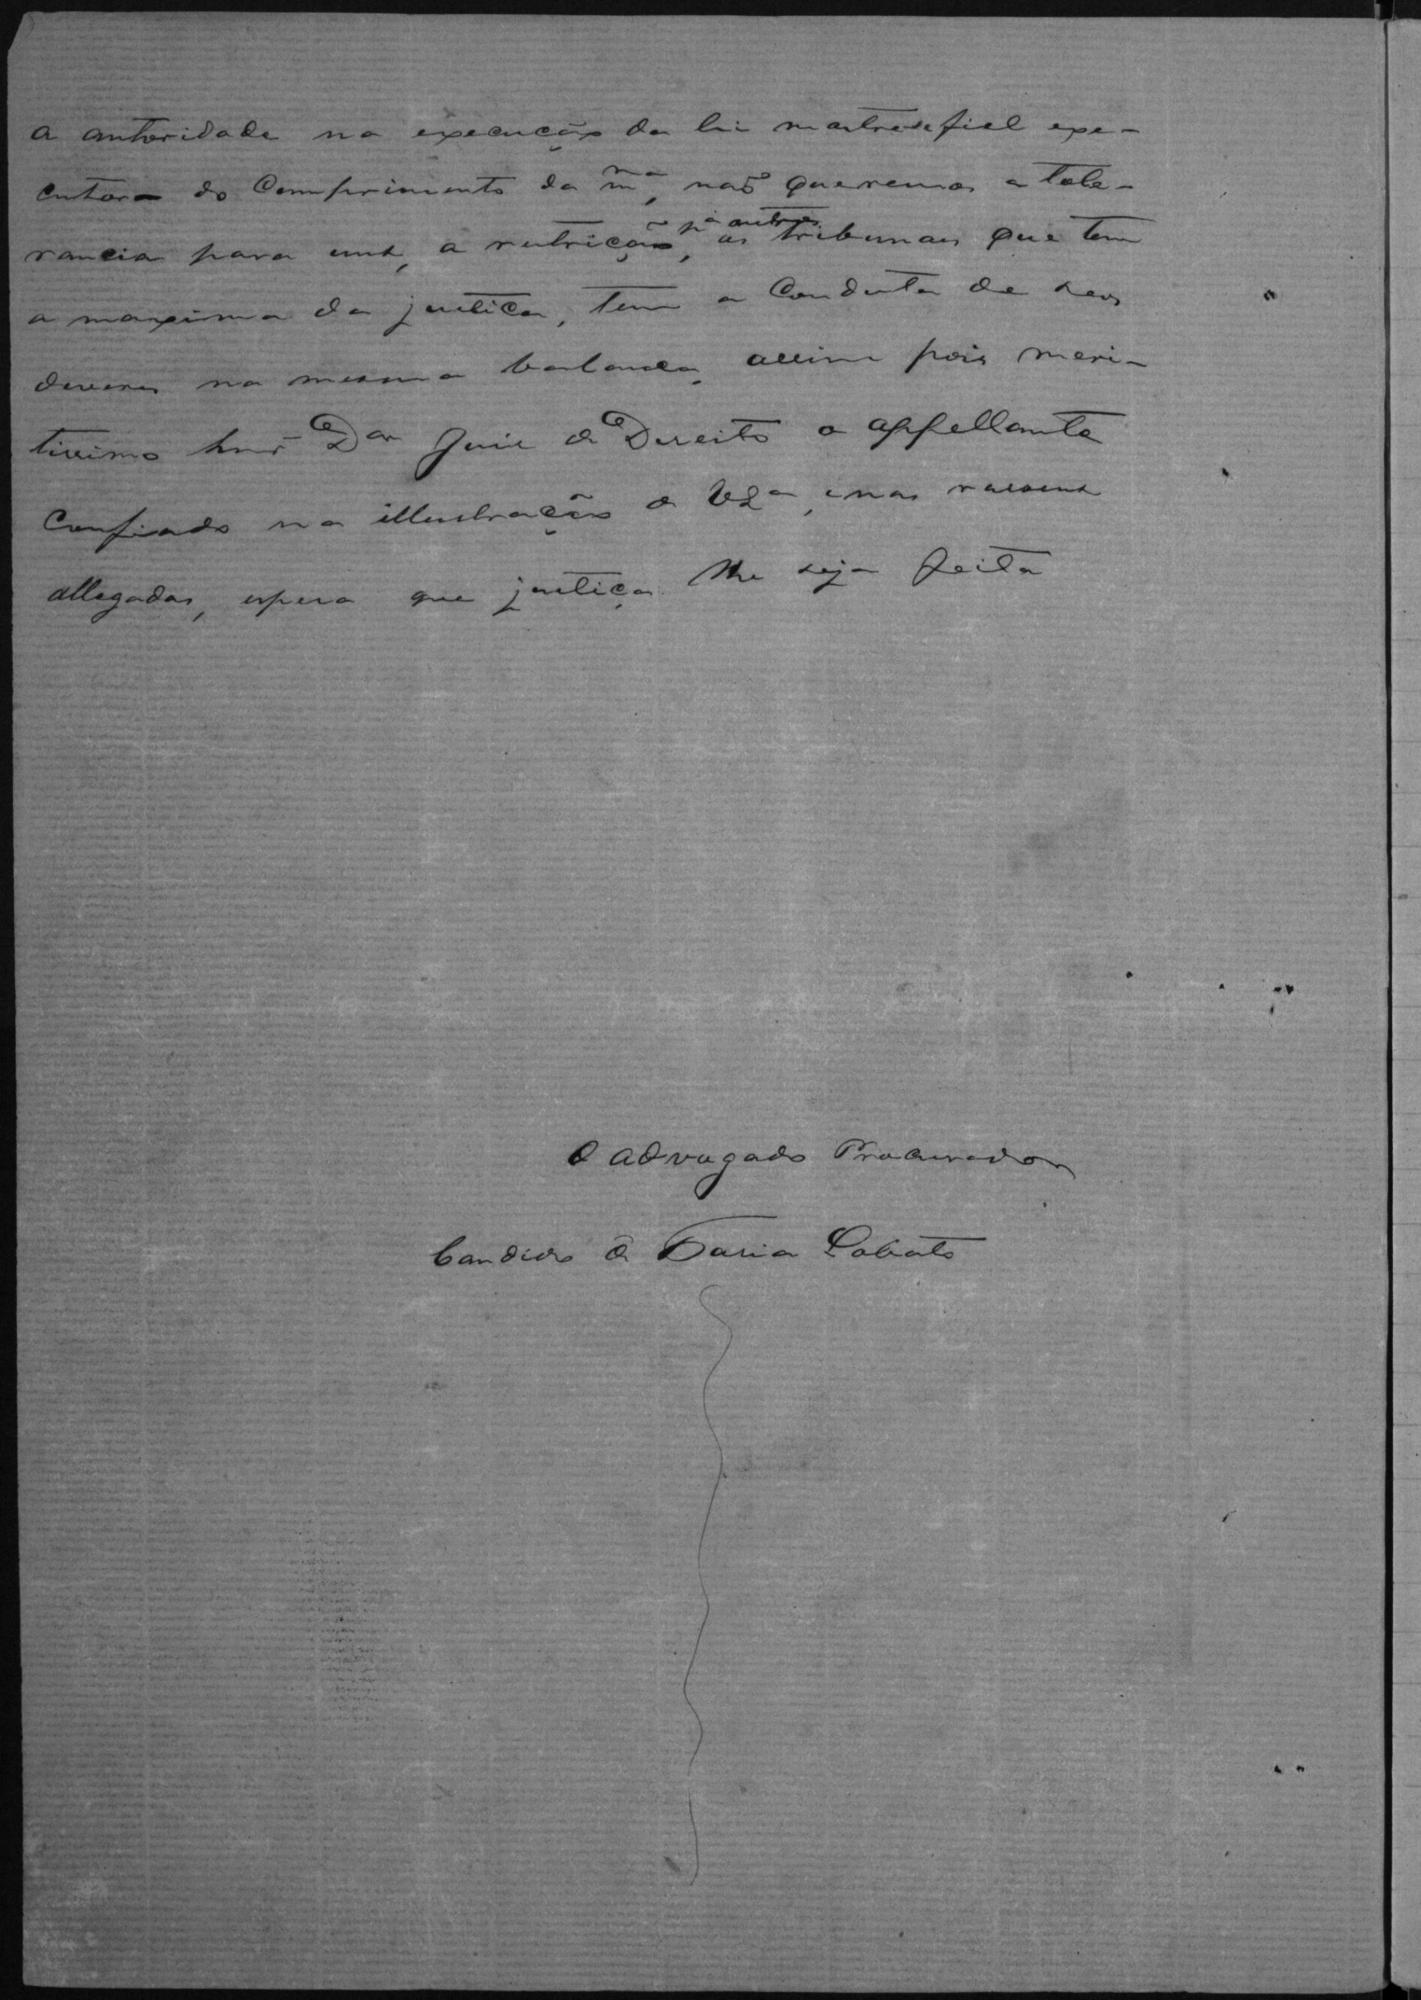 a autoridade na execução da lei mostre-se fiel exe-
cutora do comprimento da m.ma, não queremos a tole-
rancia para uns, a restricção p.a outros, os tribunaes que tem
a maxima da justiça, tem a conducta de seos
deveres na mesma balança, assim pois meri-
tissimo Snr Dor Juiz de Direito o appellante
confiado na illustração de V.S.a, e nas rasoens
allegadas, espera que justiça lhe seja feita
O advogado Procurador
Candido de Faria Lobato